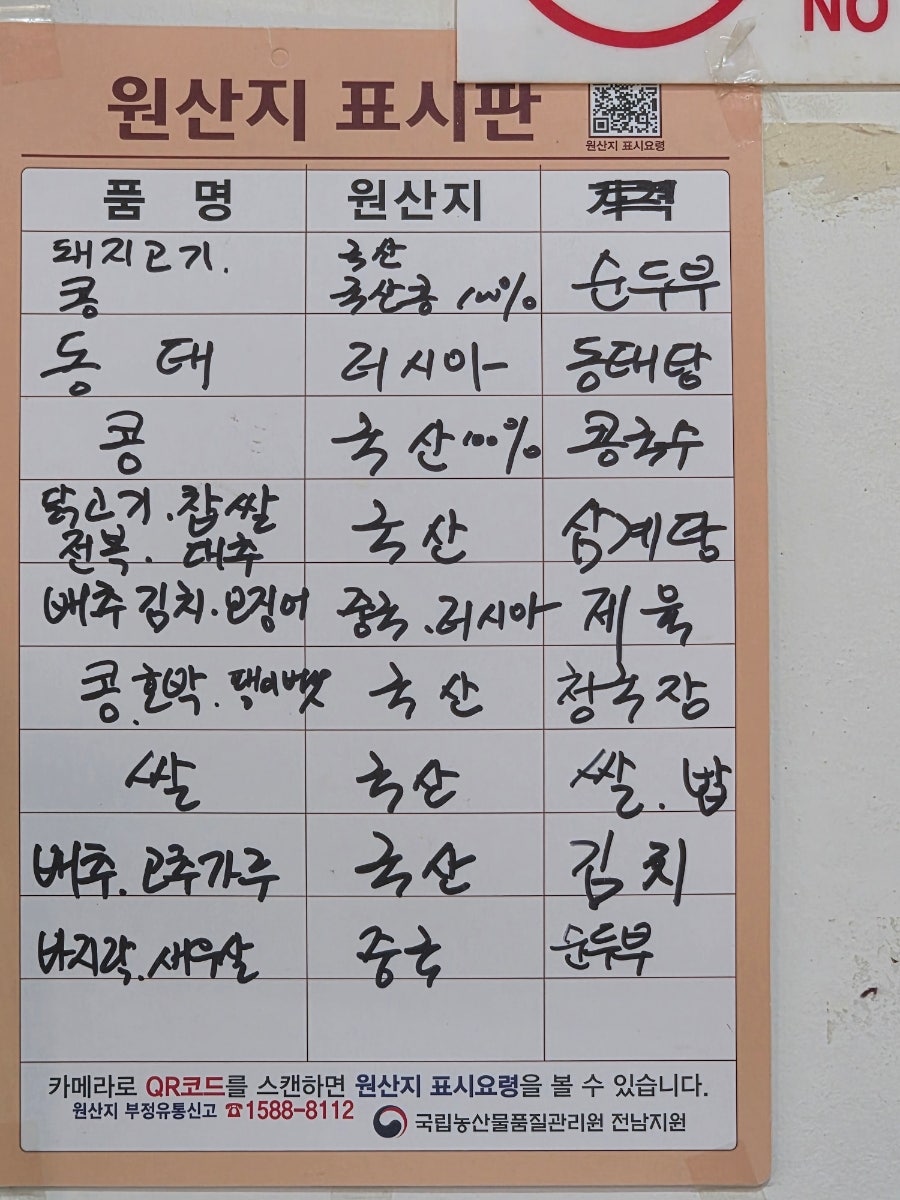 NO
원산지 표시판
원산지 표시요령
품 명 원산지
돼지고기. 국산 순두부
콩 국산콩 100%
동 태 러시아 동태탕
콩 국 산 100% 콩국수
닭고기. 찹쌀 국 산 삼계탕
전복. 대추
배추김치. 오징어 중국. 러시아 제 육
콩. 호박. 팽이버섯 국 산 청국장
쌀 국산 쌀. 밥
배추. 고추가루 국 산 김 치
바지락. 새우살 중국 순두부
카메라로 QR코드를 스캔하면 원산지 표시요령을 볼 수 있습니다.
원산지 부정유통신고 ☎1588-8112
국립농산물품질관리원 전남지원